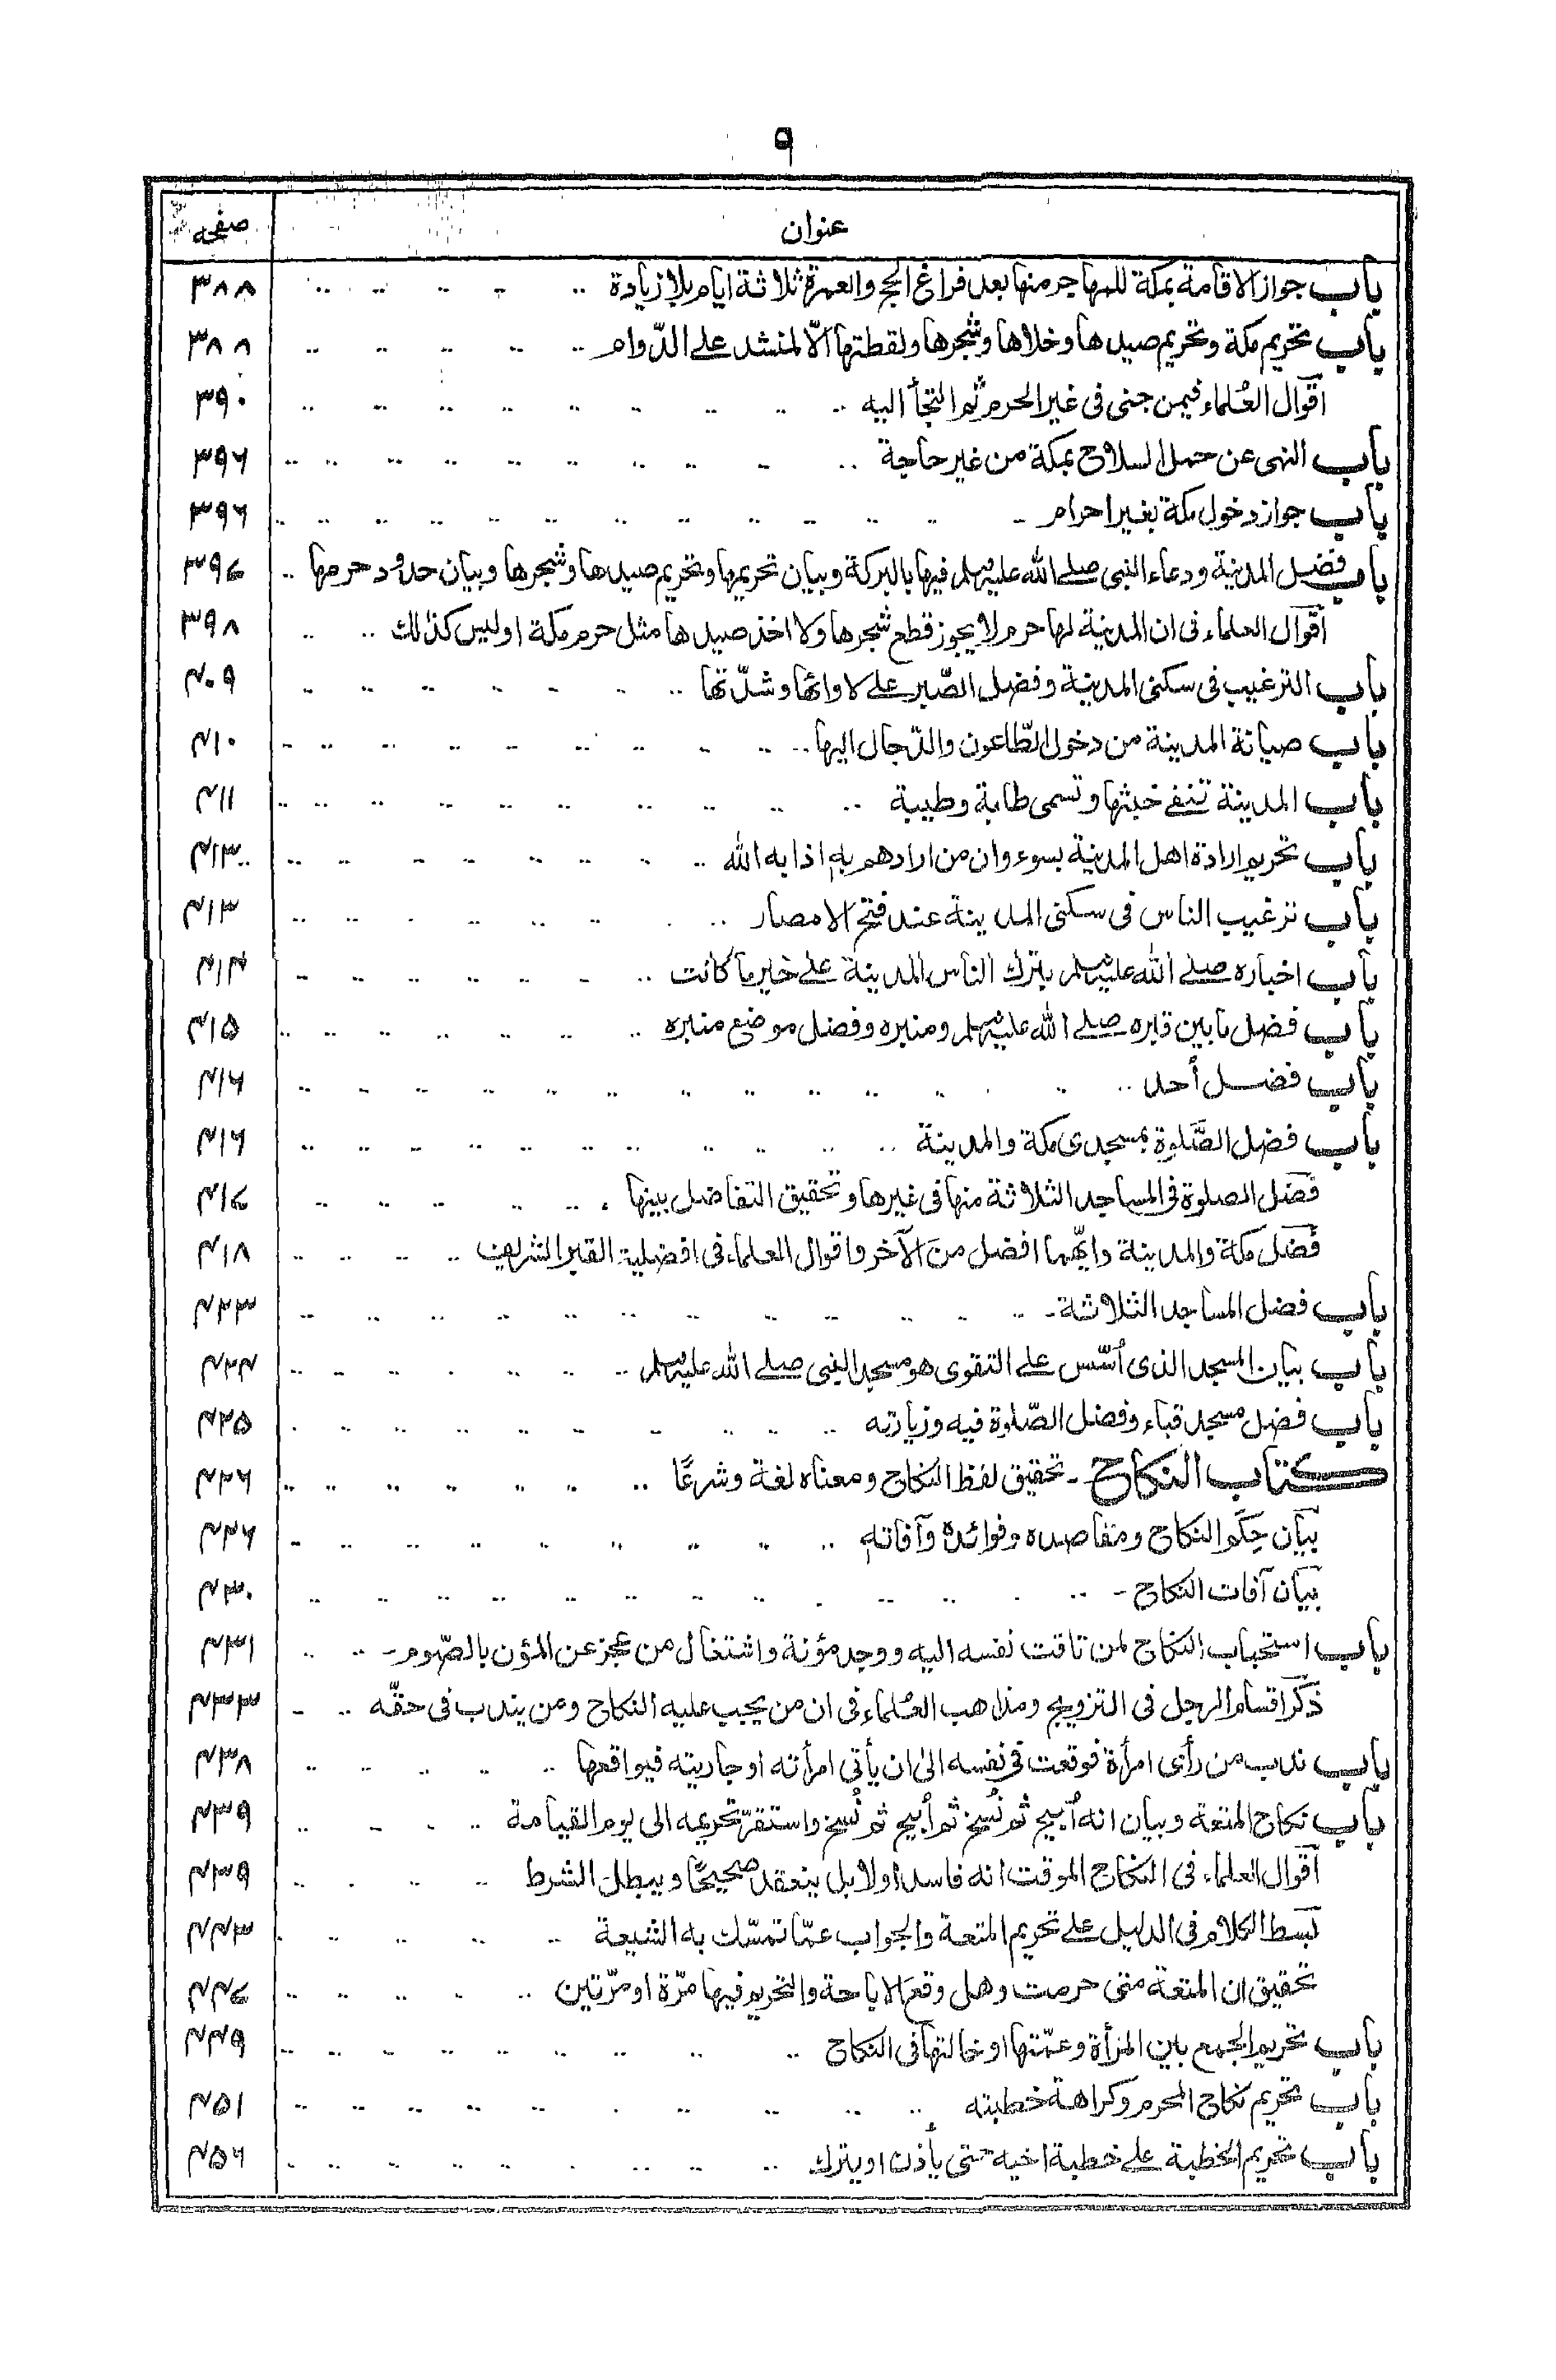 ۹
عنوان صفحه
باب جواز الاقامة بمكة للمهاجر منها بعد فراغ الحج والعمرة ثلاثة ايام بلا زيادة ۳۸۸
باب تحريم مكة وتحريم صيدها وخلاها وشجرها ولقطتها الّا لمنشد على الدّوام ۳۸۸
اقوال العُلماء فيمن جنى فى غير الحرم ثم التجأ اليه ۳۹۰
باب النهى عن حمل السلاح بمكة من غير حاجة ۳۹۶
باب جواز دخول مكة بغير احرام ۳۹۶
باب فضل المدينة ودعاء النبى صلے الله عليه وسلم فيها بالبركة وبيان تحريمها وتحريم صيدها وشجرها وبيان حدود حرمها ۳۹۷
اقوال العلماء فى ان المدينة لها حرم لا يجوز قطع شجرها ولا اخذ صيدها مثل حرم مكة اوليس كذالك ۳۹۸
باب الترغيب فى سكنى المدينة وفضل الصّبر على لاوائها وشدّتها ۴۰۹
باب صيانة المدينة من دخول الطّاعون والدّجال اليها ۴۱۰
باب المدينة تنفے خبثها وتسمى طابة وطيبة ۴۱۱
باب تحريم ارادة اهل المدينة بسوء وان من ارادهم به اذابه الله ۴۱۳
باب ترغيب الناس فى سكنى المدينة عند فتح الامصار ۴۱۳
باب اخباره صلے الله عليه وسلم بترك الناس المدينة على خير ما كانت ۴۱۴
باب فضل ما بين قبره صلے الله عليه وسلم ومنبره وفضل موضع منبره ۴۱۵
باب فضل أحد ۴۱۶
باب فضل الصَّلٰوة بمسجدى مكة والمدينة ۴۱۶
فضل الصلوة فى المساجد الثلاثة منها فى غيرها وتحقيق التفاضل بينها ۴۱۷
فضل مكة والمدينة وايّهما افضل من الآخر واقوال العلماء فى افضلية القبر الشريف ۴۱۸
باب فضل المساجد الثلاثة ۴۲۳
باب بيان المسجد الذى أسّس على التقوى هو مسجد النبى صلے الله عليه وسلم ۴۲۴
باب فضل مسجد قباء وفضل الصّلوة فيه وزيارته ۴۲۵
كتاب النكاح - تحقيق لفظ النكاح ومعناه لغة وشرعًا ۴۲۶
بيان حِكَم النكاح ومقاصده وفوائده وآفاته ۴۲۶
بيان آفات النكاح ۴۳۰
باب استحباب النكاح لمن تاقت نفسه اليه ووجد مؤنة واشتغال من عجز عن المؤن بالصّوم ۴۳۱
ذكر اقسام الرجل فى التزويج ومذاهب العُلماء فى ان من يجب عليه النكاح ومن يندب فى حقّه ۴۳۳
باب ندب من رأى امرأة فوقعت فى نفسه الىٰ ان يأتى امرأته او جاريته فيواقعها ۴۳۸
باب نكاح المتعة وبيان انه أبيح ثم نُسخ ثم أبيح ثم نُسخ واستقرّ تحريمه الى يوم القيامة ۴۳۹
اقوال العلماء فى النكاح الموقت انه فاسد اولا بل ينعقد صحيحًا ويبطل الشرط ۴۳۹
بسط الكلام فى الدليل على تحريم المتعة والجواب عمّا تمسّك به الشيعة ۴۴۳
تحقيق ان المتعة متى حرمت وهل وقع الاباحة والتحريم فيها مرّة او مرّتين ۴۴۷
باب تحريم الجمع بين المرأة وعمّتها او خالتها فى النكاح ۴۴۹
باب تحريم نكاح المحرم وكراهة خطبته ۴۵۱
باب تحريم الخطبة على خطبة اخيه حتى يأذن او يترك ۴۵۶